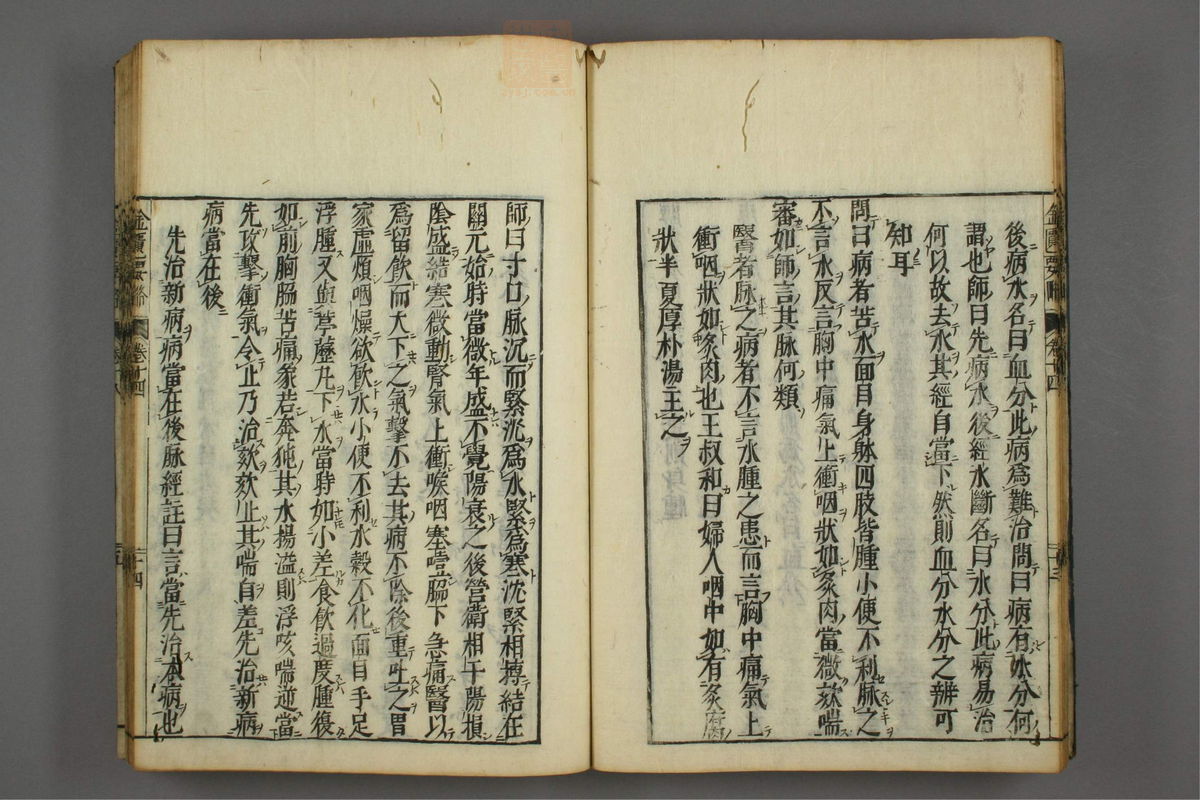 後病水名曰血分此病爲難治問曰病有水分何
謂也師曰先病水後經水斷名曰水分此病易治
何以故去水其經自當下然則血分水分之辨可
知耳
問曰病者苦水面目身躰四肢皆腫小便不利脉之
不言水反言胸中痛氣上衝咽狀如炙肉當微欬喘
審如師言其脉何類
醫者脉之病者不言水腫之患而言胸中痛氣上
衝咽狀如炙肉也王叔和曰婦人咽中如有炙腐
狀半夏厚朴湯主之
師曰寸口脉沉而緊沉爲水緊爲寒沈緊相搏結在
關元始時當微年盛不覺陽衰之後營衛相干陽損
陰盛結寒微動腎氣上衝喉咽塞噎脇下急痛醫以
爲留飲而大下之氣擊不去其病不除後重吐之胃
家虛煩咽燥欲飲水小便不利水穀不化面目手足
浮腫又與葶藶丸下水當時如小差食飲過度腫復
如前胸脇苦痛象若奔独其水揚溢則浮咳喘逆當
先攻擊衝氣令止乃治欬欬止其喘自差先治新病
病當在後
先治新病病當在後脉經註曰言當先治本病也
金匱要略
卷十四